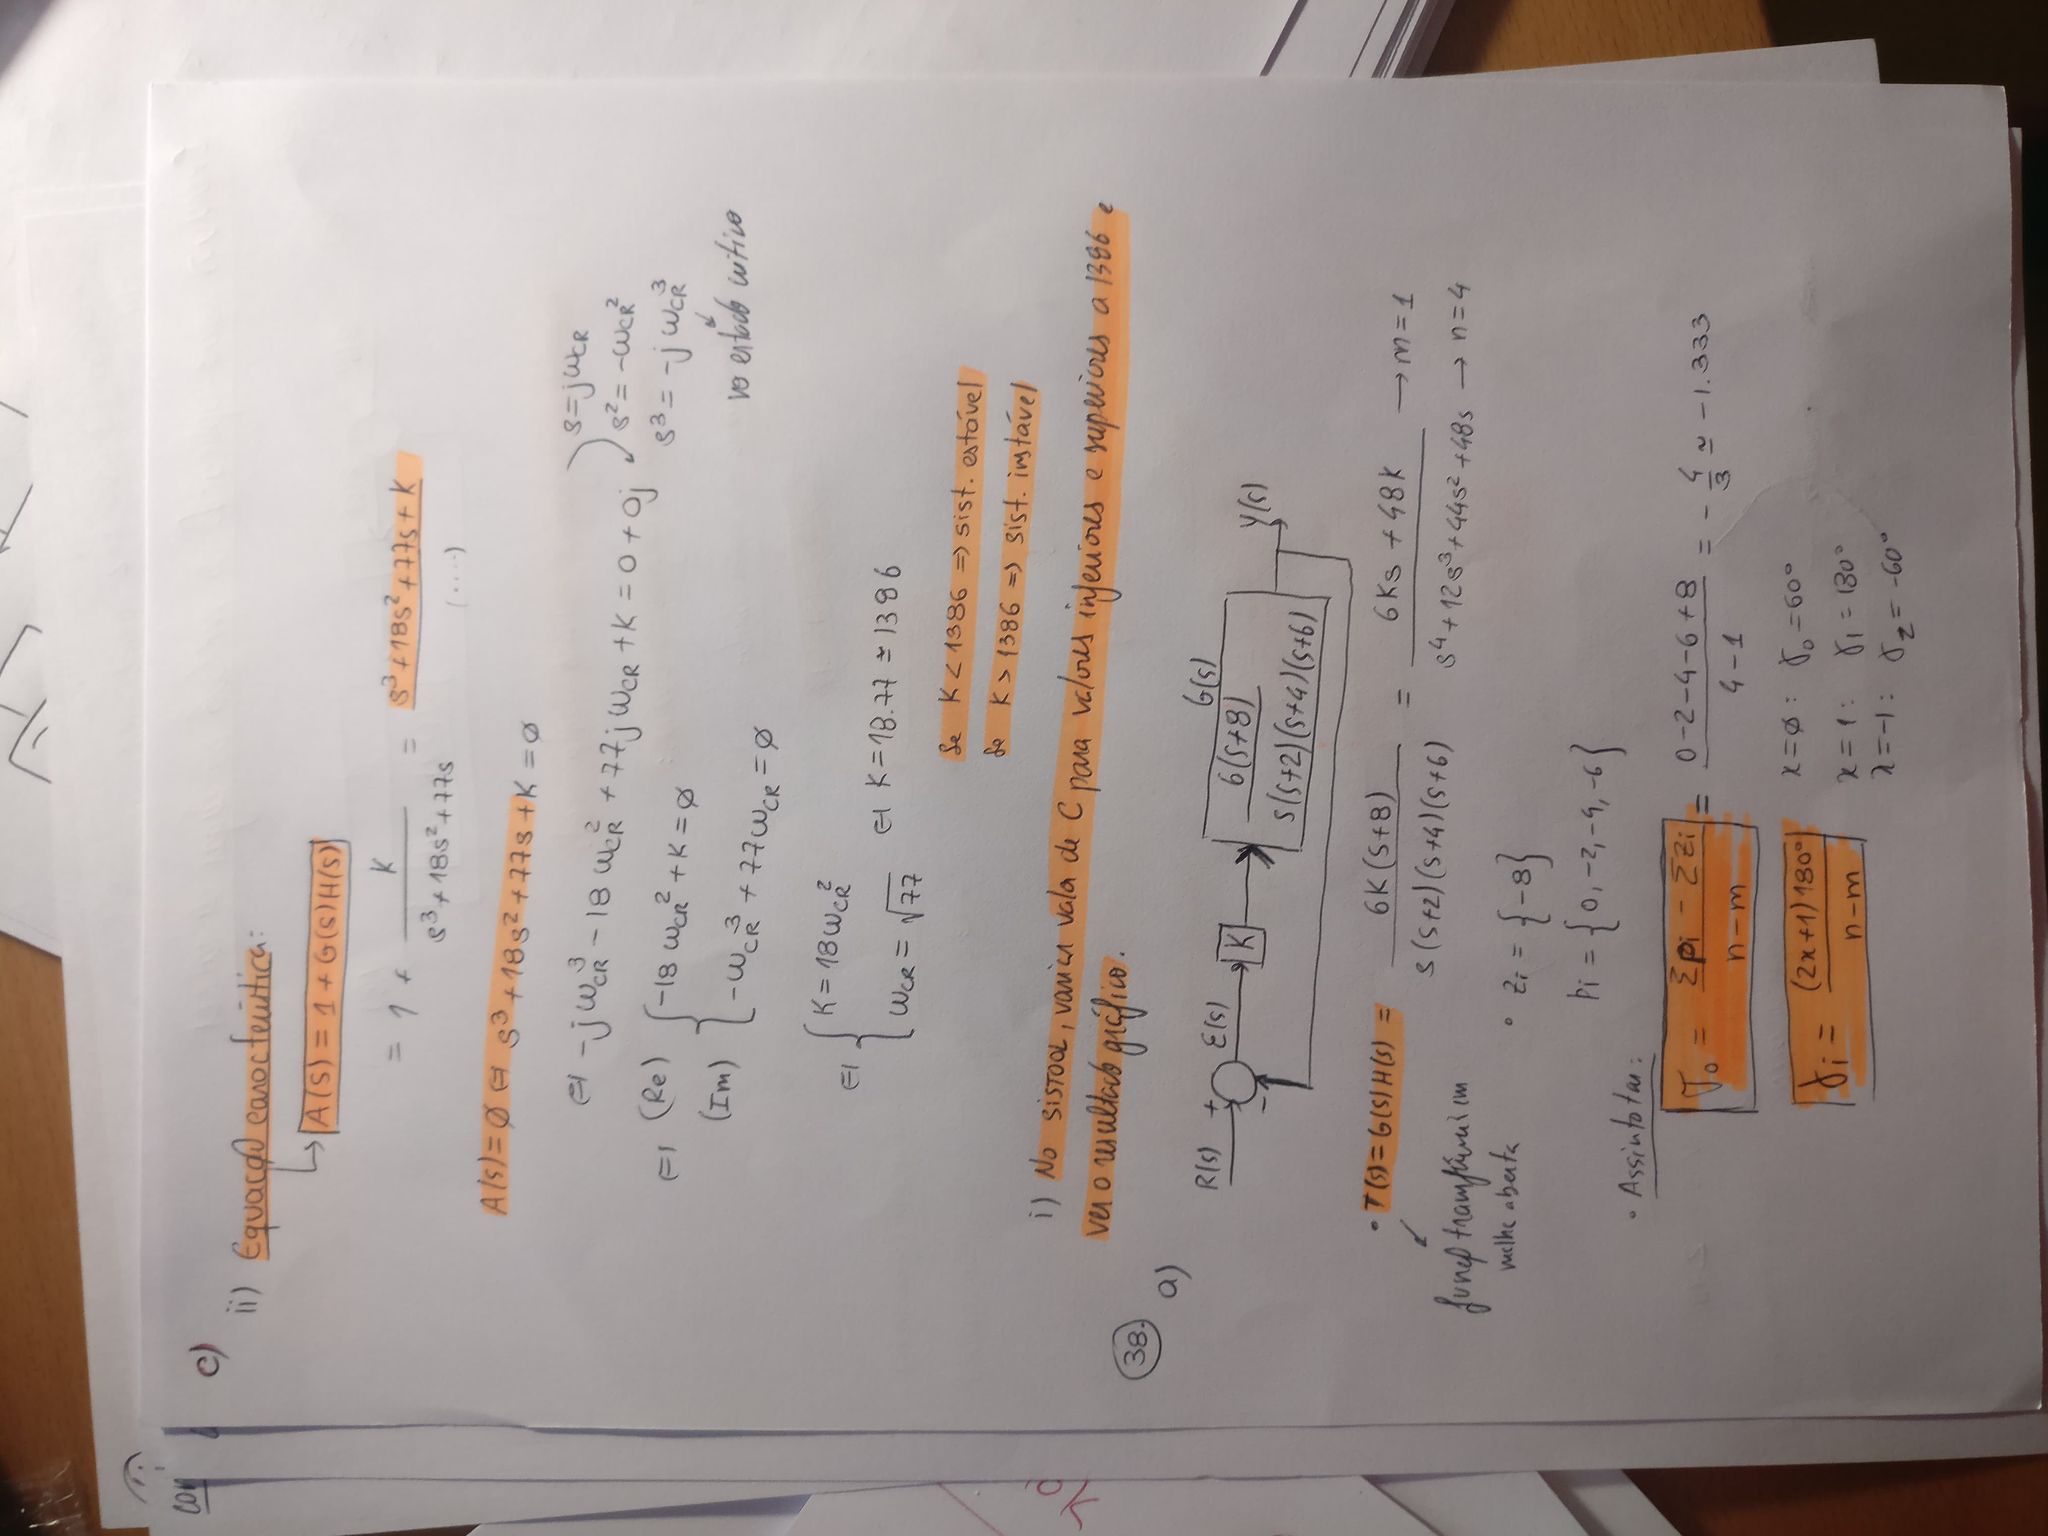 con
c)
ii) Equação característica:
A(s) = 1 + G(s)H(s)
= 1 + K / (s³+18s²+77s) = s³+18s²+77s+K / (....)
A(s)=∅ ⇔ s³+18s²+77s+K=∅
⇔ -jω_CR³ - 18ω_CR² + 77jω_CR + K = 0+0j
s=jω_CR
s² = -ω_CR²
s³ = -jω_CR³
no estado crítico
⇔ (Re) { -18ω_CR² + K = ∅
(Im) { -ω_CR³ + 77ω_CR = ∅
⇔ { K = 18ω_CR²
{ ω_CR = √77 ⇔ K = 18.77 ≃ 1386
Se K < 1386 ⇒ sist. estável
Se K > 1386 ⇒ sist. instável
i) No SISTOOL, variar valor de C para valores inferiores e superiores a 1386 e
ver o resultado gráfico.
OK
38.
a)
R(s) + - E(s) K G(s) 6(s+8) / s(s+2)(s+4)(s+6) Y(s)
• T(s)=G(s)H(s) = 6K(s+8) / s(s+2)(s+4)(s+6) = 6Ks+48K / s⁴+12s³+44s²+48s → m=1 → n=4
malha aberta
• zi = {-8}
pi = {0,-2,-4,-6}
• Assintotas:
σ₀ = Σpi - Σzi / n-m = 0-2-4-6+8 / 4-1 = -4/3 ≃ -1.333
γi = (2x+1)180° / n-m
x=∅: γ₀=60°
x=1: γ₁=180°
x=-1: γ₂=-60°